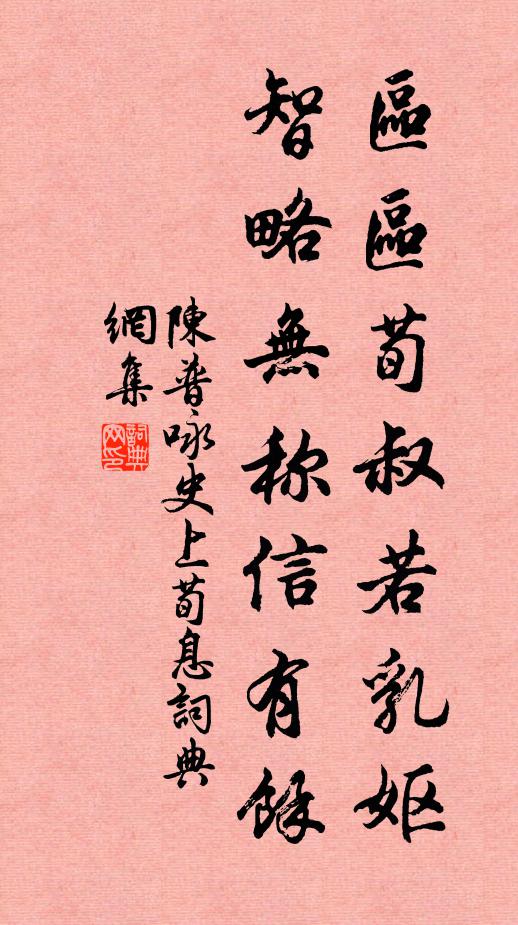 區區荀叔若乳妪
智略無称信有餘
陳普咏史上荀息詞典
網集
詞典
网印